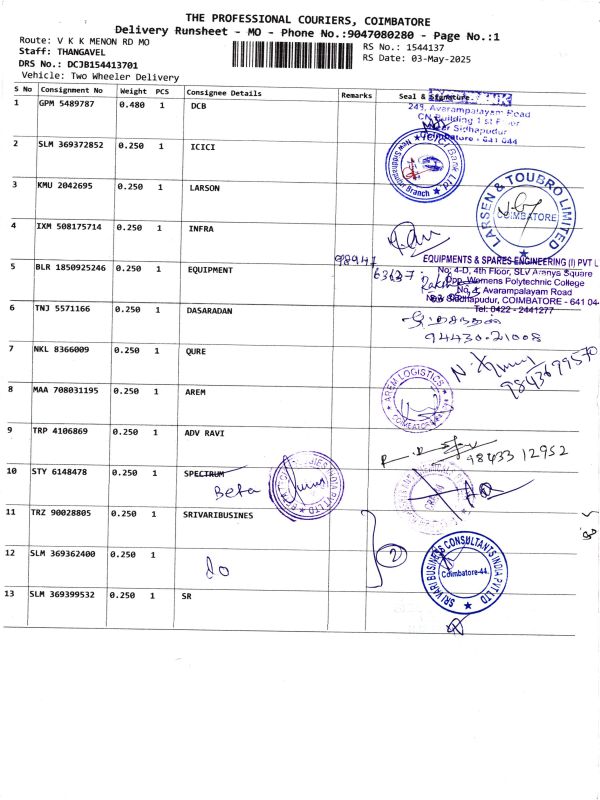 THE PROFESSIONAL COURIERS, COIMBATORE
Delivery Runsheet - MO - Phone No.:9047080280 - Page No.:1
Route: V K K MENON RD MO
RS No.: 1544137
Staff: THANGAVEL
RS Date: 03-May-2025
DRS No.: DCJB154413701
Vehicle: Two Wheeler Delivery
S No Consignment No Weight PCS Consignee Details Remarks Seal & Signature
1 GPM 5489787 0.480 1 DCB
249, Avarampalayam Road
CN Building 1st Floor
Sidhapudur
Coimbatore - 641 044
2 SLM 369372852 0.250 1 ICICI
ICICI Bank Ltd
Branch
3 KMU 2042695 0.250 1 LARSON
LARSEN & TOUBRO LIMITED
COIMBATORE
4 IXM 508175714 0.250 1 INFRA
98947
63637
EQUIPMENTS & SPARES ENGINEERING (I) PVT L
No: 4-D, 4th Floor, SLV Aranya Square
Opp. Womens Polytechnic College
No. 5, Avarampalayam Road
New Sidhapudur, COIMBATORE - 641 044
Tel: 0422 - 2441277
5 BLR 1850925246 0.250 1 EQUIPMENT
6 TNJ 5571166 0.250 1 DASARADAN
94430-21008
7 NKL 8366009 0.250 1 QURE
9843679570
8 MAA 708031195 0.250 1 AREM
AREM LOGISTICS
COIMBATORE
9 TRP 4106869 0.250 1 ADV RAVI
98433 12952
10 STY 6148478 0.250 1 SPECTRUM
Beta
11 TRZ 90028805 0.250 1 SRIVARIBUSINES
2
12 SLM 369362400 0.250 1
do
SRI VARI BUSINESS CONSULTANTS INDIA PVT LTD
Coimbatore-44.
13 SLM 369399532 0.250 1 SR